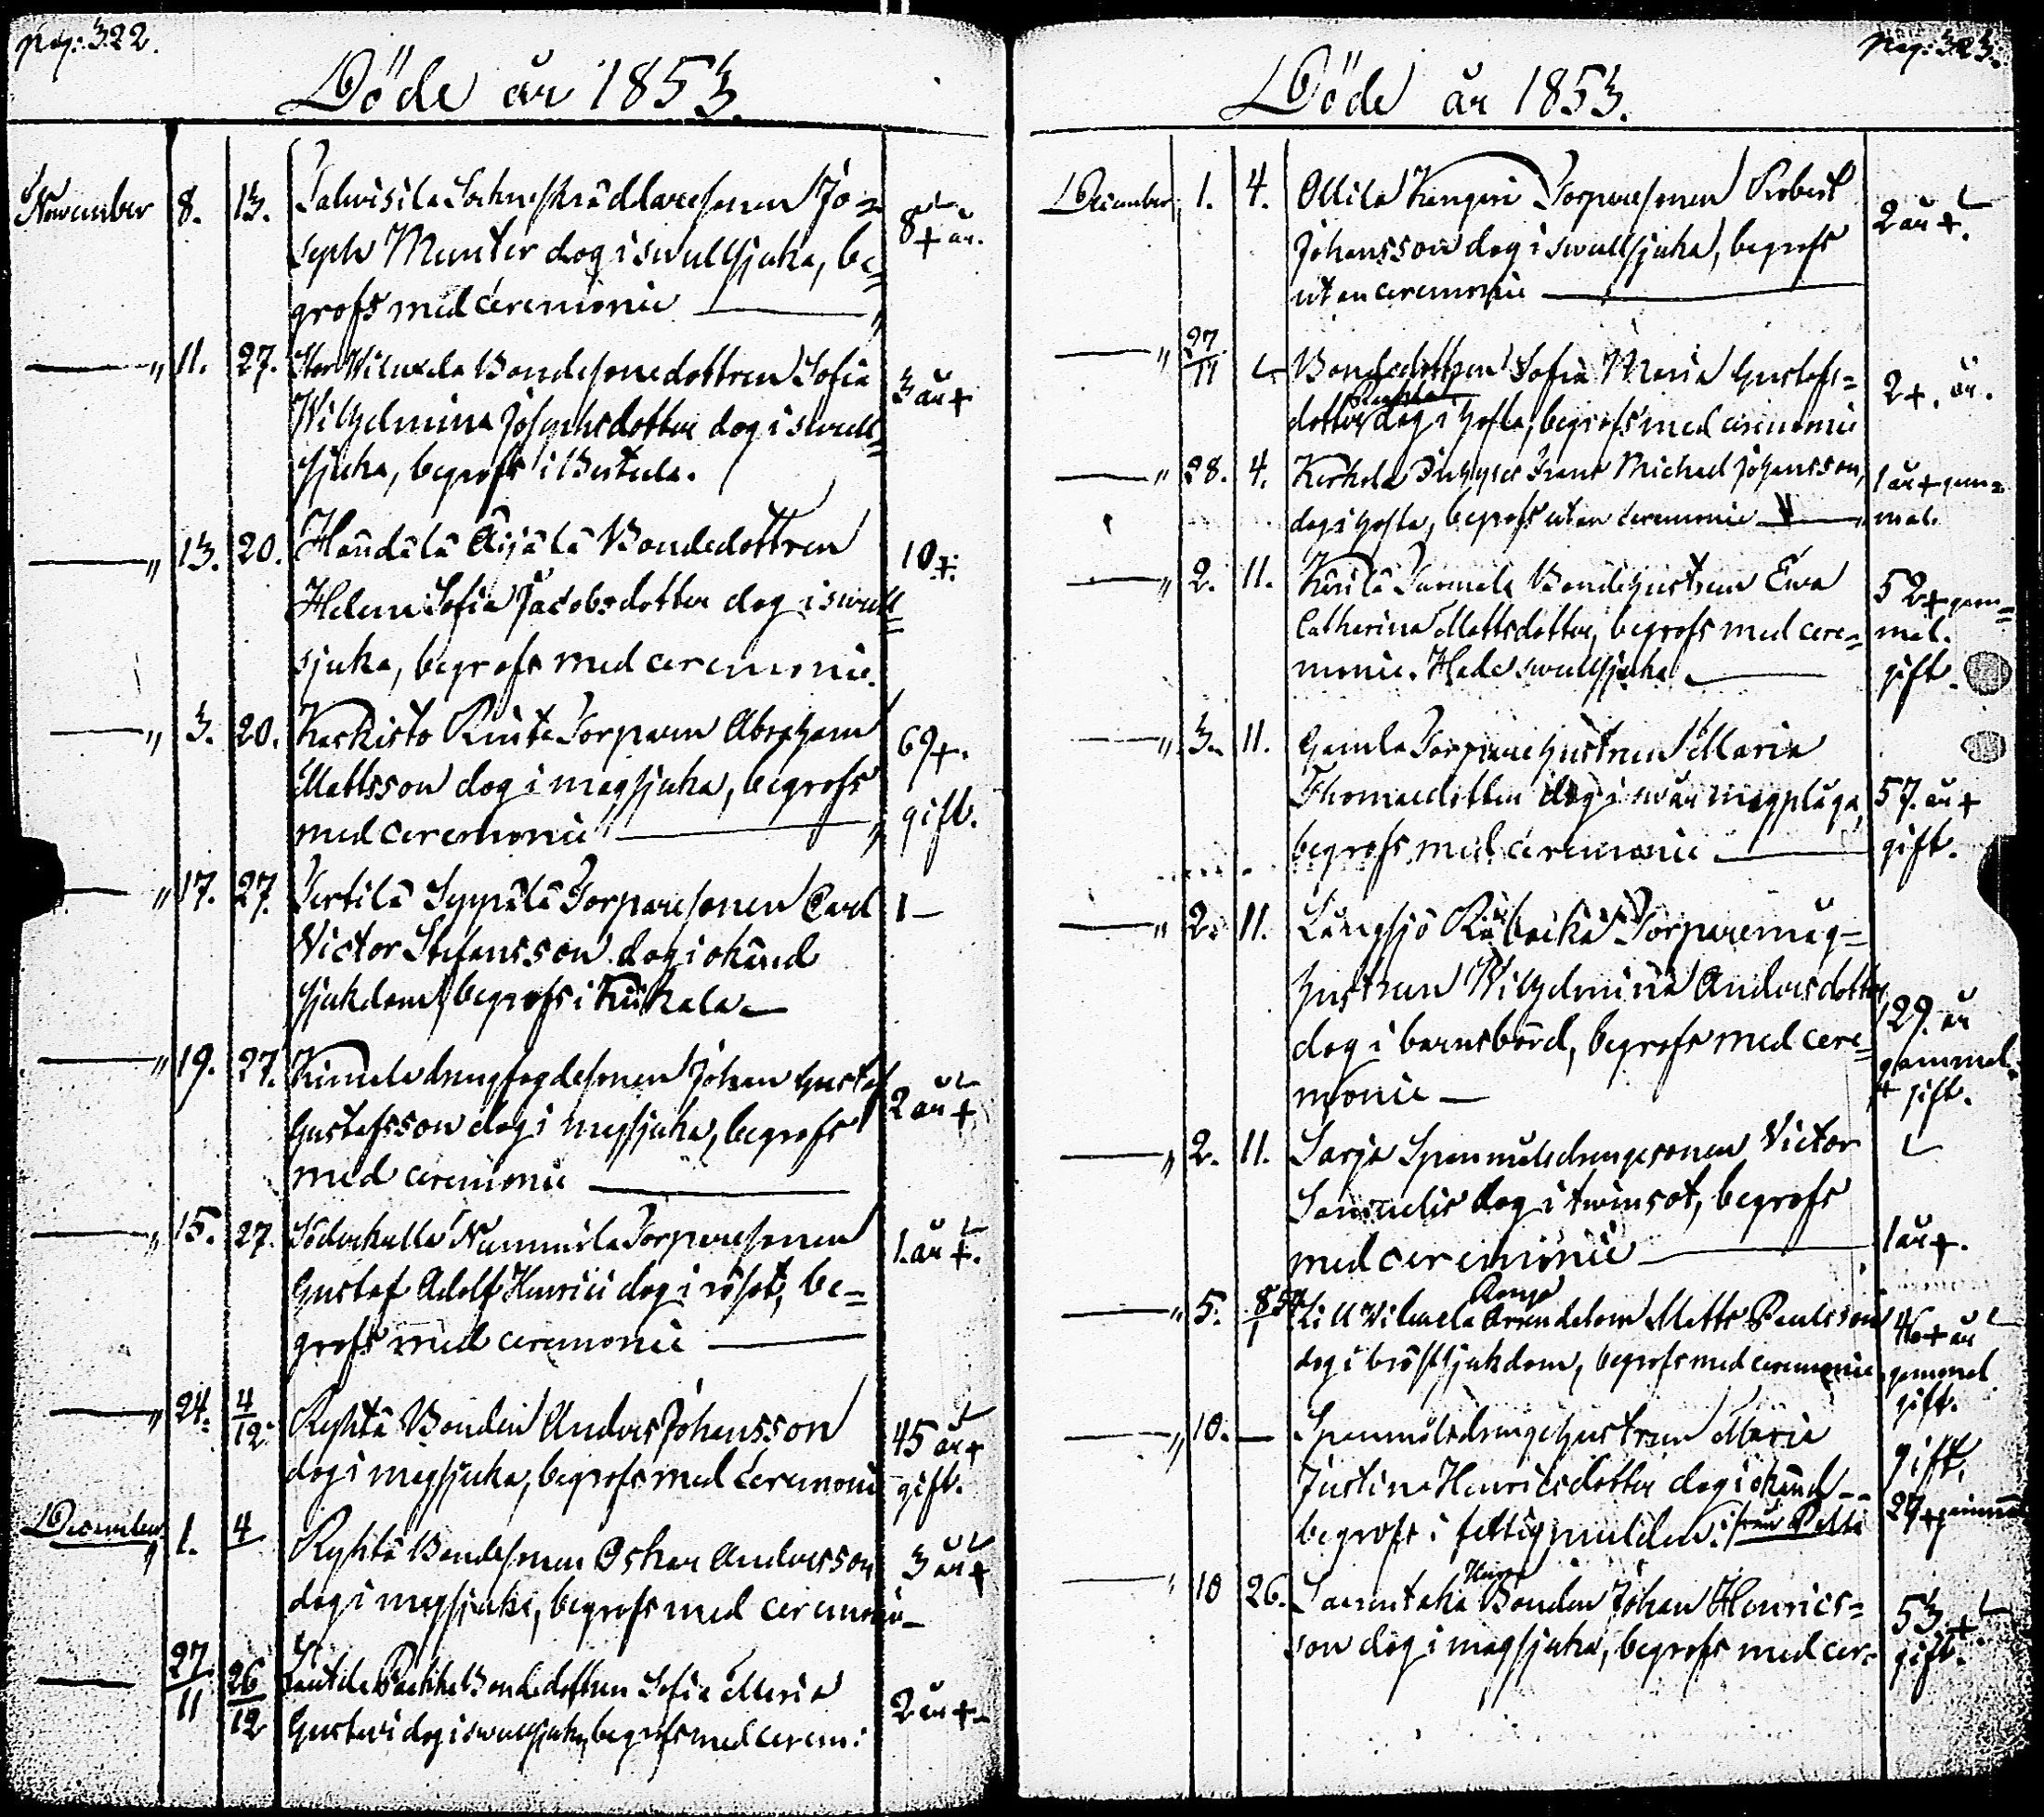 Pag: 322.
Döde år 1853.
November 8. 13. Sockneskräddaresonen Jo=
seph Munter dog i swullsjuka, be=
grofs med ceremonie
8 + år.
" 11. 27. Stor Wilunda Bondesonedottren Sofia
Wilhelmina Josephsdotter dog i swull=
sjuka, begrofs i
3 år +
" 13. 20. Händälä Äijälä Bondedottren
Helena Sofia Jacobsdotter dog i swull=
sjuka, begrofs med ceremonie.
10 +.
" 3. 20. Kaskisto Torparen Abraham
Mattsson dog i magsjuka, begrofs
med ceremonie
69 +.
gift.
" 17. 27. Pertilä Seppälä Torparesonen Carl
Victor Stefansson dog i okänd
sjukdom, begrofs i Kiikala
1 —
" 19. 27. drengfogdesonen Johan Gustaf
Gustafsson dog i magsjuka, begrofs
med ceremonie
2 år +
" 15. 27. Söderkulla Nummila Torparesonen
Gustaf Adolf Henrici dog i rösot, be=
grofs med ceremonie
1 år +.
" 24. 4/12. Ryhtä Bonden Anders Johansson
dog i magsjuka, begrofs med ceremonie
45 år +
gift.
December " 1. 4 Ryhtä Bondesonen Oskar Andersson
dog i magsjuka, begrofs med ceremonie
3 år +
27/11 26/12 Bondedottren Sofia Maria
Gustavi dog i swullsjuka, begrofs med cerem:
2 år +
Pag: 323.
Döde år 1853.
December 1. 4. Ollila Torparesonen Robert
Johansson dog i swullsjuka, begrofs
utan ceremonie
2 år +.
" 27/11 Bondedottren Sofia Maria Gustafs=
dotter dog i hosta, begrofs med ceremonie
2 +. år.
" 28. 4. Frans Michael Johansson,
dog i hosta, begrofs utan ceremonie
1 år + gam=
mal.
" 2. 11. Bondehustrun Ewa
Catharina Mattsdotter, begrofs med cere=
monie. Hade swullsjuka
52 + gam=
mal.
gift.
" 3. 11. Gamla Torparehustrun Maria
Thomasdotter dog i swår magplåga,
begrofs med ceremonie
57. år +
gift.
" 2. 11. Långsjö Torparemåg=
hustrun Wilhelmina Andersdotter
dog i barnsbörd, begrofs med cere=
monie
29. år
gammal.
+ gift.
" 2. 11. Sarja Spannmålsdrengesonen Victor
Samuelis dog i twinsot, begrofs
med ceremonie
1 år +.
" 5. 8/1 54. Lill Wilunda Matts Paulsson
dog i bröstsjukdom, begrofs med ceremonie
46 + år
gammal
gift.
" 10. — Spannmålsdrengehustrun Maria
Justina Henricsdotter dog i okänd
begrofs i fattigmullden. från
gift.
27 + gammal
" 10 26. Bonden Johan Henrics=
son dog i magsjuka, begrofs med cer=
53. +.
gift.